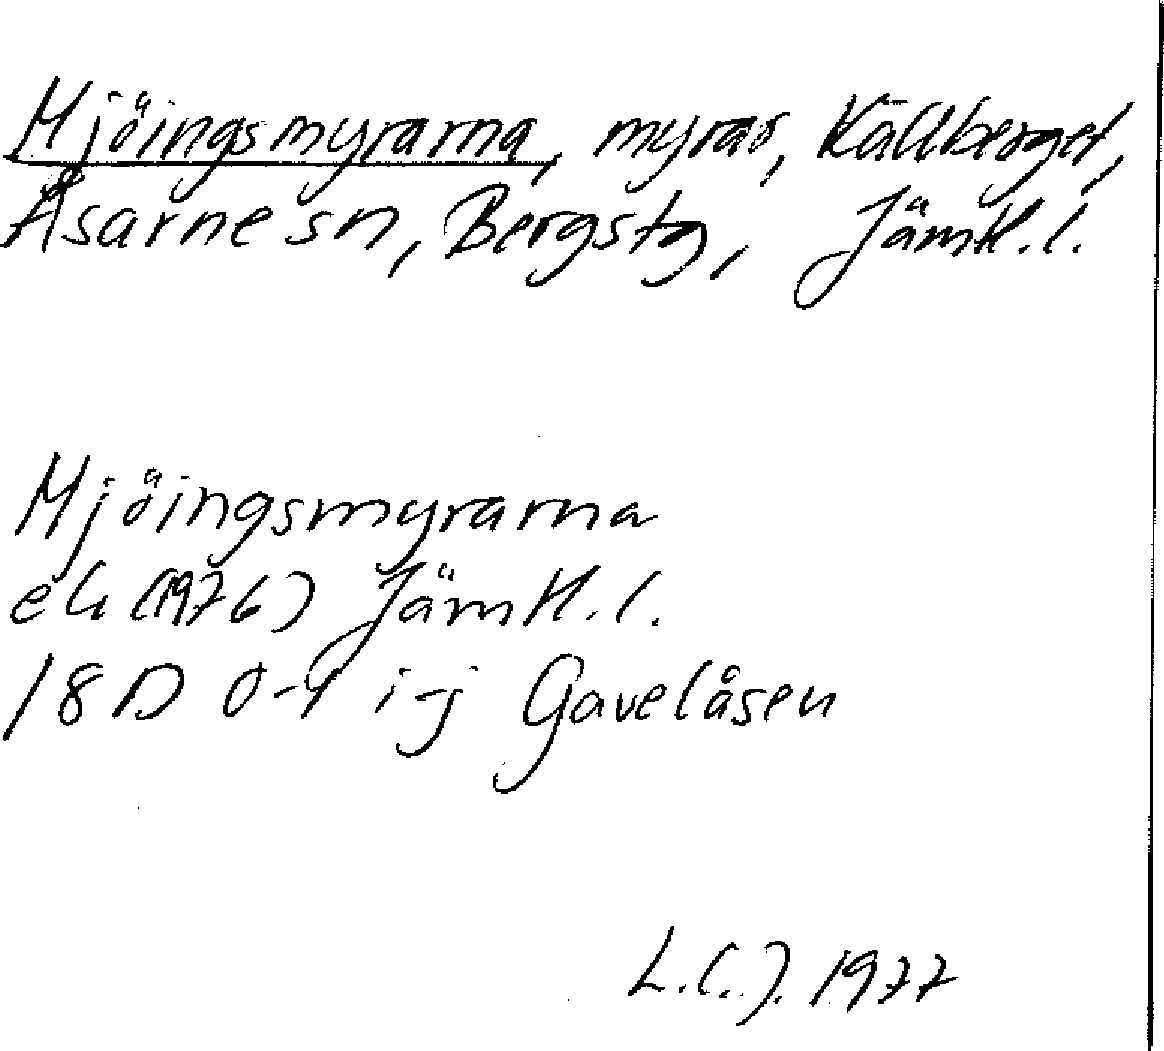 Mjöingsmyrarna, myrar, Källberget,
Åsarne sn, Bergs tg, Jämtl. l.
Mjöingsmyrarna
ek (1976) Jämtl. l.
18D 0-1 i-j Gavelåsen
L.C.J. 1977